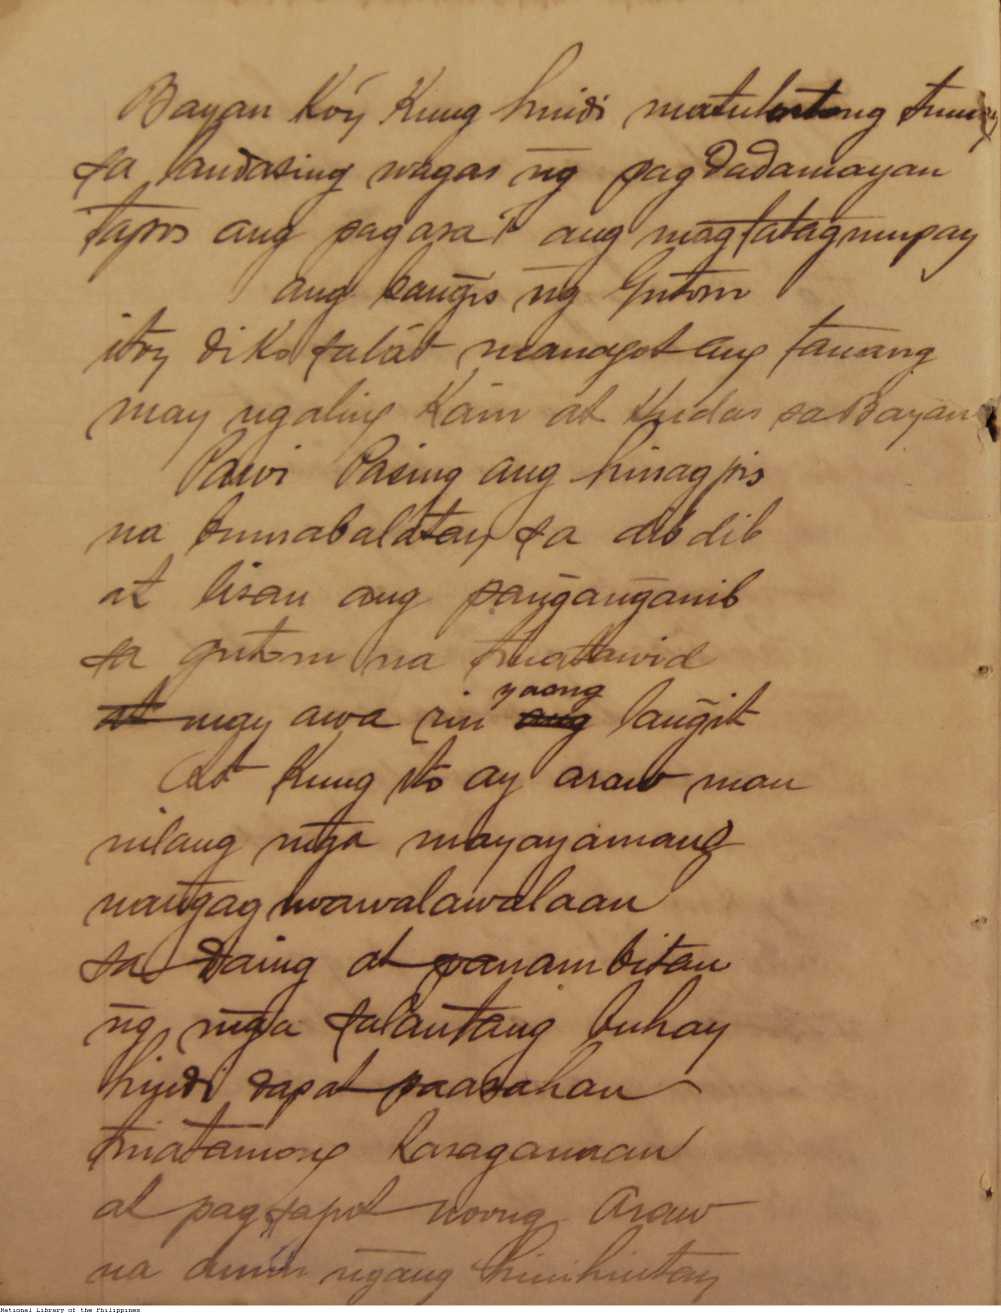 Bayan Kó'y Kung hindi matututong
sa landasing wagas n̄g pagdadamayan
tapos ang pagasa't ang magtatagumpay
ang ban̄gis n̄g Gutom
itoy diko salát managot ang tanang
may ngaling Kain at Kudas sa Bayan
Pawi Pasing ang hinagpis
na bumabalatay sa dibdib
at lisan ang pan̄gan̄ganib
sa gutom na tinatawid
may awa rin yaong lan̄git
At Kung ito ay araw man
nilang mg̃a mayayamang
nan̄gagwawalawalaan
sa daing at panambitan
n̄g mg̃a salantang buhay
hindi dapat paasahan
tinatamong kasaganaan
at pagsapit noong Araw
na amin n̄gang hinihintay
National Library of the Philippines